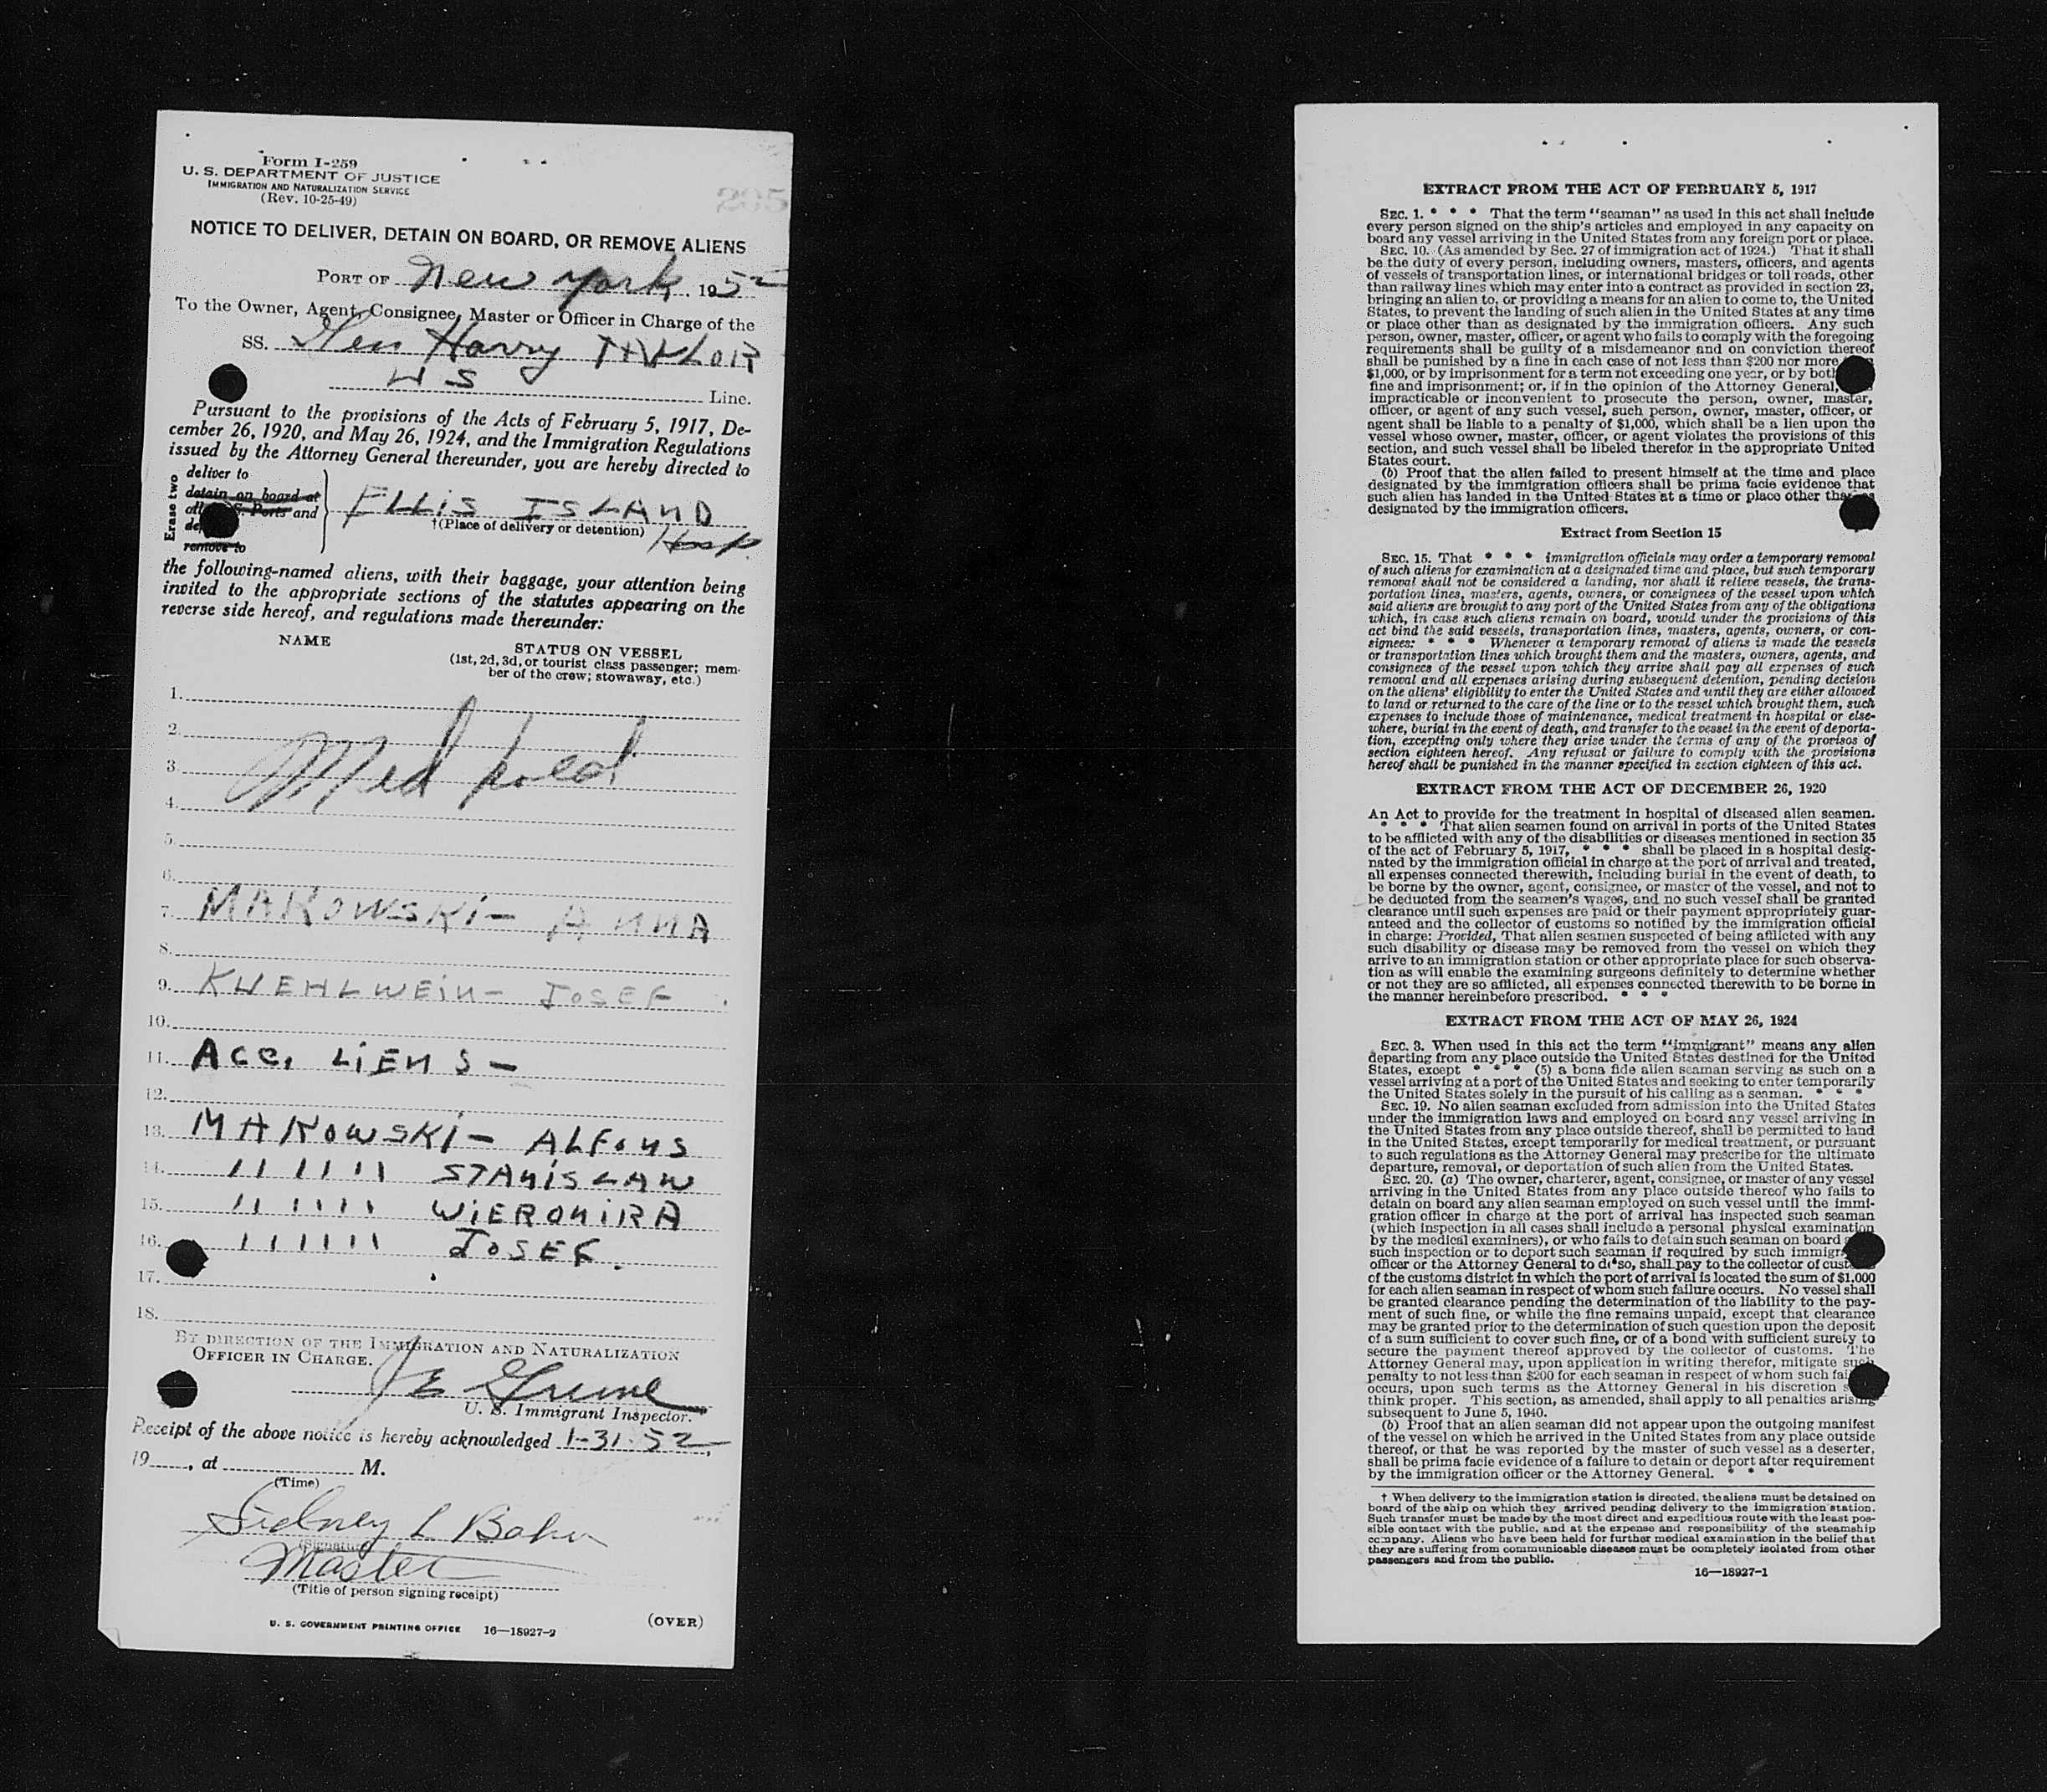 Form I-259
U. S. DEPARTMENT OF JUSTICE
IMMIGRATION AND NATURALIZATION SERVICE
(Rev. 10-25-49)
NOTICE TO DELIVER, DETAIN ON BOARD, OR REMOVE ALIENS
PORT OF New York, 1952
To the Owner, Agent, Consignee, Master or Officer in Charge of the
SS. Gen Harry TAYLOR
US Line.
Pursuant to the provisions of the Acts of February 5, 1917, De-
cember 26, 1920, and May 26, 1924, and the Immigration Regulations
issued by the Attorney General thereunder, you are hereby directed to
Erase two
deliver to
detain on board at
Ports and
remove to
ELLIS ISLAND
†(Place of delivery or detention) Hosp.
the following-named aliens, with their baggage, your attention being
invited to the appropriate sections of the statutes appearing on the
reverse side hereof, and regulations made thereunder:
NAME
STATUS ON VESSEL
(1st, 2d, 3d, or tourist class passenger; mem-
ber of the crew; stowaway, etc.)
1.
2.
3. Med
4.
5.
6.
7. MAKOWSKI- ANNA
8.
9. KUEHLWEIN- JOSEF
10.
11. Acc. LIENS-
12.
13. MAKOWSKI- ALFONS
14. " " " STANISLAW
15. " " " WIERONIRA
16. " " " JOSEF.
17.
18.
BY DIRECTION OF THE IMMIGRATION AND NATURALIZATION
OFFICER IN CHARGE.
U. S. Immigrant Inspector.
Receipt of the above notice is hereby acknowledged 1-31-52,
19____, at ____ M.
(Time)
Sidney L
(Signature)
Master
(Title of person signing receipt)
U. S. GOVERNMENT PRINTING OFFICE 16—18927-2
(OVER)
EXTRACT FROM THE ACT OF FEBRUARY 5, 1917
SEC. 1. * * * That the term "seaman" as used in this act shall include
every person signed on the ship's articles and employed in any capacity on
board any vessel arriving in the United States from any foreign port or place.
SEC. 10. (As amended by Sec. 27 of immigration act of 1924.) That it shall
be the duty of every person, including owners, masters, officers, and agents
of vessels of transportation lines, or international bridges or toll roads, other
than railway lines which may enter into a contract as provided in section 23,
bringing an alien to, or providing a means for an alien to come to, the United
States, to prevent the landing of such alien in the United States at any time
or place other than as designated by the immigration officers. Any such
person, owner, master, officer, or agent who fails to comply with the foregoing
requirements shall be guilty of a misdemeanor and on conviction thereof
shall be punished by a fine in each case of not less than $200 nor more
$1,000, or by imprisonment for a term not exceeding one year, or by both
fine and imprisonment; or, if in the opinion of the Attorney General,
impracticable or inconvenient to prosecute the person, owner, master,
officer, or agent of any such vessel, such person, owner, master, officer, or
agent shall be liable to a penalty of $1,000, which shall be a lien upon the
vessel whose owner, master, officer, or agent violates the provisions of this
section, and such vessel shall be libeled therefor in the appropriate United
States court.
(b) Proof that the alien failed to present himself at the time and place
designated by the immigration officers shall be prima facie evidence that
such alien has landed in the United States at a time or place other than as
designated by the immigration officers.
Extract from Section 15
SEC. 15. That * * * immigration officials may order a temporary removal
of such aliens for examination at a designated time and place, but such temporary
removal shall not be considered a landing, nor shall it relieve vessels, the trans-
portation lines, masters, agents, owners, or consignees of the vessel upon which
said aliens are brought to any port of the United States from any of the obligations
which, in case such aliens remain on board, would under the provisions of this
act bind the said vessels, transportation lines, masters, agents, owners, or con-
signees: * * * Whenever a temporary removal of aliens is made the vessels
or transportation lines which brought them and the masters, owners, agents, and
consignees of the vessel upon which they arrive shall pay all expenses of such
removal and all expenses arising during subsequent detention, pending decision
on the aliens' eligibility to enter the United States and until they are either allowed
to land or returned to the care of the line or to the vessel which brought them, such
expenses to include those of maintenance, medical treatment in hospital or else-
where, burial in the event of death, and transfer to the vessel in the event of deporta-
tion, excepting only where they arise under the terms of any of the provisos of
section eighteen hereof. Any refusal or failure to comply with the provisions
hereof shall be punished in the manner specified in section eighteen of this act.
EXTRACT FROM THE ACT OF DECEMBER 26, 1920
An Act to provide for the treatment in hospital of diseased alien seamen.
* * * That alien seamen found on arrival in ports of the United States
to be afflicted with any of the disabilities or diseases mentioned in section 35
of the act of February 5, 1917, * * * shall be placed in a hospital desig-
nated by the immigration official in charge at the port of arrival and treated,
all expenses connected therewith, including burial in the event of death, to
be borne by the owner, agent, consignee, or master of the vessel, and not to
be deducted from the seamen's wages, and no such vessel shall be granted
clearance until such expenses are paid or their payment appropriately guar-
anteed and the collector of customs so notified by the immigration official
in charge: Provided, That alien seamen suspected of being afflicted with any
such disability or disease may be removed from the vessel on which they
arrive to an immigration station or other appropriate place for such observa-
tion as will enable the examining surgeons definitely to determine whether
or not they are so afflicted, all expenses connected therewith to be borne in
the manner hereinbefore prescribed. * * *
EXTRACT FROM THE ACT OF MAY 26, 1924
SEC. 3. When used in this act the term "immigrant" means any alien
departing from any place outside the United States destined for the United
States, except * * * (5) a bona fide alien seaman serving as such on a
vessel arriving at a port of the United States and seeking to enter temporarily
the United States solely in the pursuit of his calling as a seaman. * * *
SEC. 19. No alien seaman excluded from admission into the United States
under the immigration laws and employed on board any vessel arriving in
the United States from any place outside thereof, shall be permitted to land
in the United States, except temporarily for medical treatment, or pursuant
to such regulations as the Attorney General may prescribe for the ultimate
departure, removal, or deportation of such alien from the United States.
SEC. 20. (a) The owner, charterer, agent, consignee, or master of any vessel
arriving in the United States from any place outside thereof who fails to
detain on board any alien seaman employed on such vessel until the immi-
gration officer in charge at the port of arrival has inspected such seaman
(which inspection in all cases shall include a personal physical examination
by the medical examiners), or who fails to detain such seaman on board
such inspection or to deport such seaman if required by such immigr
officer or the Attorney General to do so, shall pay to the collector of customs
of the customs district in which the port of arrival is located the sum of $1,000
for each alien seaman in respect of whom such failure occurs. No vessel shall
be granted clearance pending the determination of the liability to the pay-
ment of such fine, or while the fine remains unpaid, except that clearance
may be granted prior to the determination of such question upon the deposit
of a sum sufficient to cover such fine, or of a bond with sufficient surety to
secure the payment thereof approved by the collector of customs. The
Attorney General may, upon application in writing therefor, mitigate such
penalty to not less than $200 for each seaman in respect of whom such fai
occurs, upon such terms as the Attorney General in his discretion s
think proper. This section, as amended, shall apply to all penalties arising
subsequent to June 5, 1940.
(b) Proof that an alien seaman did not appear upon the outgoing manifest
of the vessel on which he arrived in the United States from any place outside
thereof, or that he was reported by the master of such vessel as a deserter,
shall be prima facie evidence of a failure to detain or deport after requirement
by the immigration officer or the Attorney General. * * *
† When delivery to the immigration station is directed, the aliens must be detained on
board of the ship on which they arrived pending delivery to the immigration station.
Such transfer must be made by the most direct and expeditious route with the least pos-
sible contact with the public, and at the expense and responsibility of the steamship
company. Aliens who have been held for further medical examination in the belief that
they are suffering from communicable diseases must be completely isolated from other
passengers and from the public.
16—18927-1